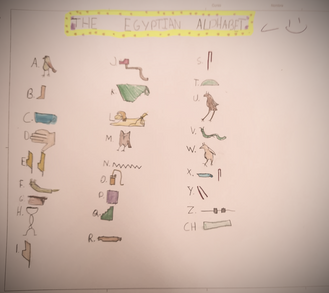 THE EGYPTIAN ALPHABET
A.
B.
C.
D.
E.
F.
G.
H.
I.
J.
K.
L.
M.
N.
O.
P.
Q.
R.
S.
T.
U.
V.
W.
X.
Y.
Z.
CH